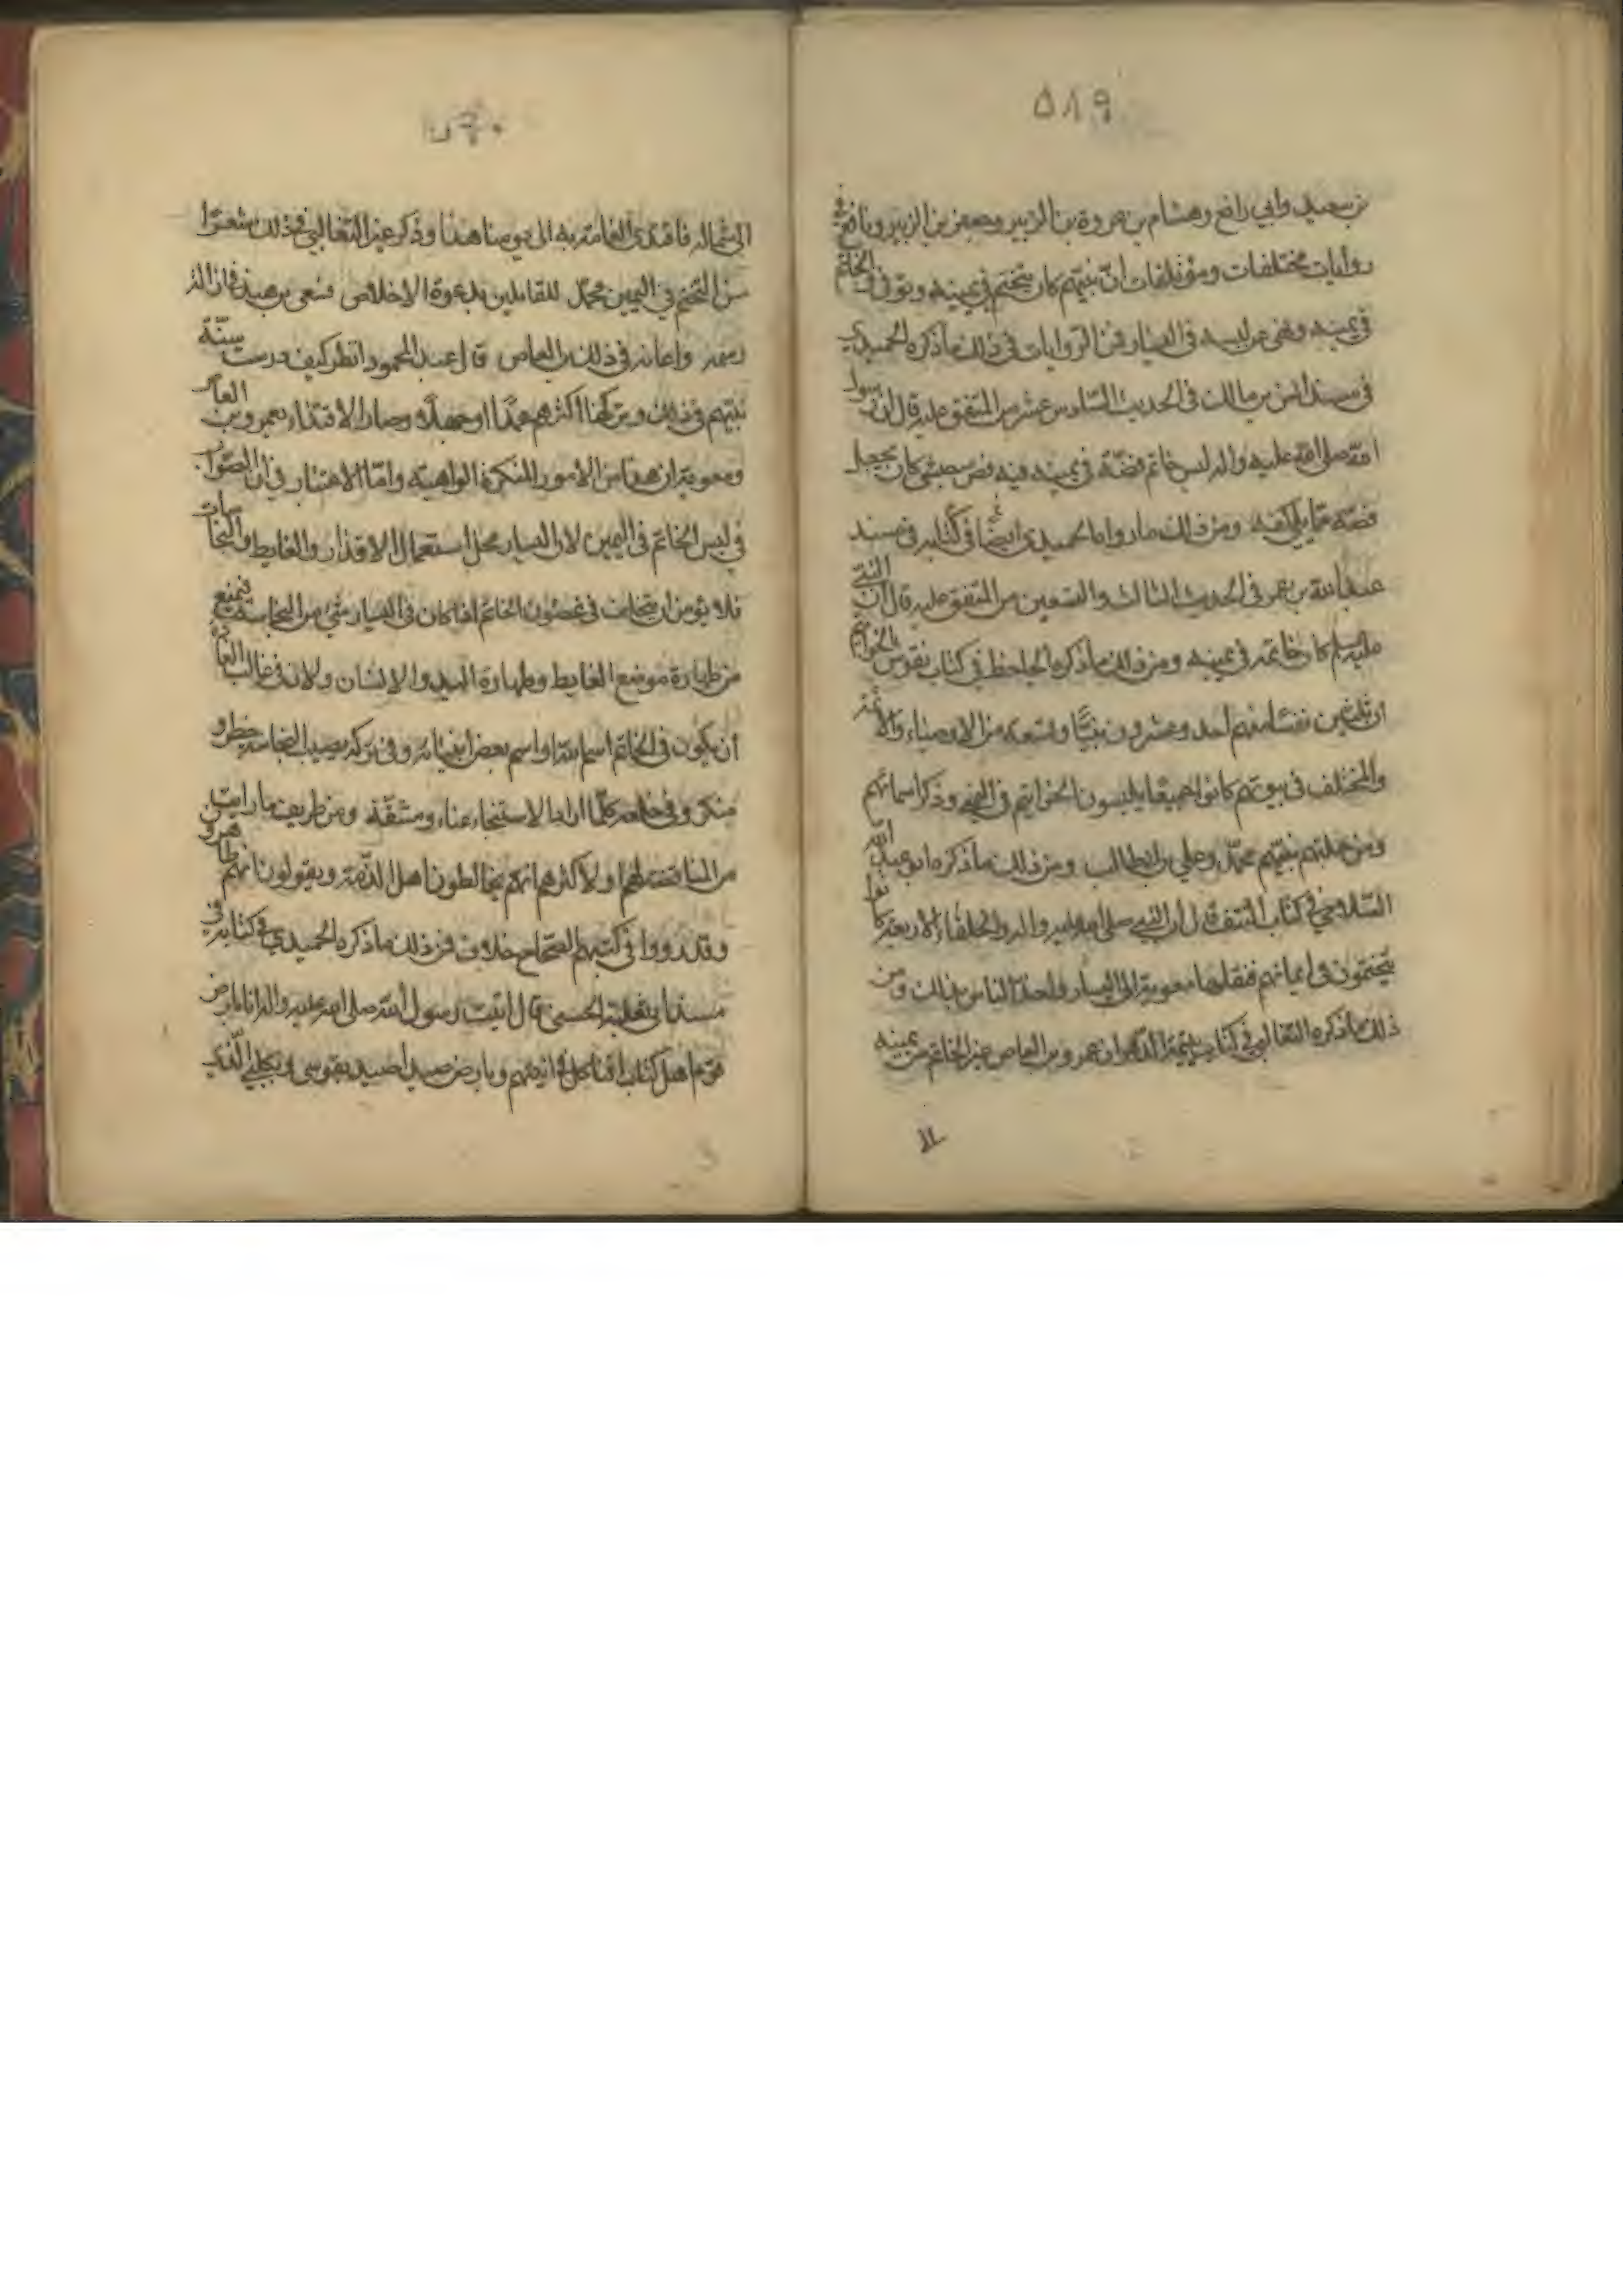 ٥٨٩
بن سعيد وابي رافع وهشام بن عروة بن الزبير وجعفر بن الزبير ونافع في
روايات مختلفات ومؤتلفات انّ نبيّهم كان يتختم في يمينه وتوفى والخاتم
في يمينه ونهى عن لبسه في اليسار فمن الروايات في ذلك ما ذكره الحميدي
في مسند انس بن مالك في الحديث السادس عشر من المتفق عليه قال ان رسول
الله صلى الله عليه واله لبس خاتم فضّة في يمينه فيه فص حبشي كان يجعل
فصّه مما يلي كفه ومن ذلك ما رواه الحميدي ايضًا في كتابه في مسند
عبد الله بن عمر في الحديث الثالث والتسعين من المتفق عليه قال ان النبي
عليه السلم كان خاتمه في يمينه ومن ذلك ما ذكره الجاحظ في كتاب نقوش الخواتيم
ان ثلثين نفسًا منهم احد وعشرون نبيًّا وتسعة من الاوصياء والائمة
والمختلف في نبوتهم كانوا جميعًا يلبسون الخواتيم في اليمين وذكر اسمائهم
ومن جملتهم نبيّهم محمّد وعلي بن ابيطالب ومن ذلك ما ذكره ابو عبد الله
السّلامي في كتاب النتف قال ان النبي صلى الله عليه واله والخلفاء الاربعة كانوا
يتختمون في ايمانهم فنقلها معوية الى اليسار واخذ الناس بذلك ومن
ذلك ما ذكره الثعالبي في كتاب يتيمة الدّهر ان عمرو بن العاص غيّر الخاتم من يمينه
الى شماله فاقتدى العامة به الى يومنا هذا وذكر غير الثعالبي في ذلك شعرًا
سنّ التختم في اليمين محمّد للقائلين بدعوة الاخلاص فسعى ابن هند في ازالة
رسمه واعانه في ذلك ابن العاص قال عبد المحمود انظر كيف درست سنّة
نبيّهم في ذلك وتركها اكثرهم عمدًا او جهلًا وصار الاقتداء بعمرو بن العاص
ومعوية ان هذا من الامور المنكرة الواهية وامّا الاعتبار في ان الصّواب
في لبس الخاتم في اليمين لان اليسار محل استعمال الاقذار والغايط والنجاسات
فلا يؤمن ان يتخلف في غصون الخاتم اذا كان في اليسار شيء من النجاسة فيمنع
من طهارة موضع الغايط وطهارة اليد والانسان ولانه في غالب العادة
أن يكون في الخاتم اسم الله او اسم بعض انبيائه وفي تركه يصيب النجاسة خطر و
منكر وفي خلعه كلّما اراد الاستنجاء عناء ومشقّة ومن طريف ما رايت
من المناقضة لهم او لاكثرهم انهم يخالطون اهل الذّمة ويقولون انهم طاهرو
وقد رووا في كتبهم الصّحاح خلاف فمن ذلك ما ذكره الحميدي في كتابه في
مسند ابي ثعلبة الخشني قال اتيت رسول الله صلى الله عليه واله انا بارض
قوم اهل كتاب افناكل في انيتهم وبارض صيد اصيد بقوسي وبكلبي الّذي